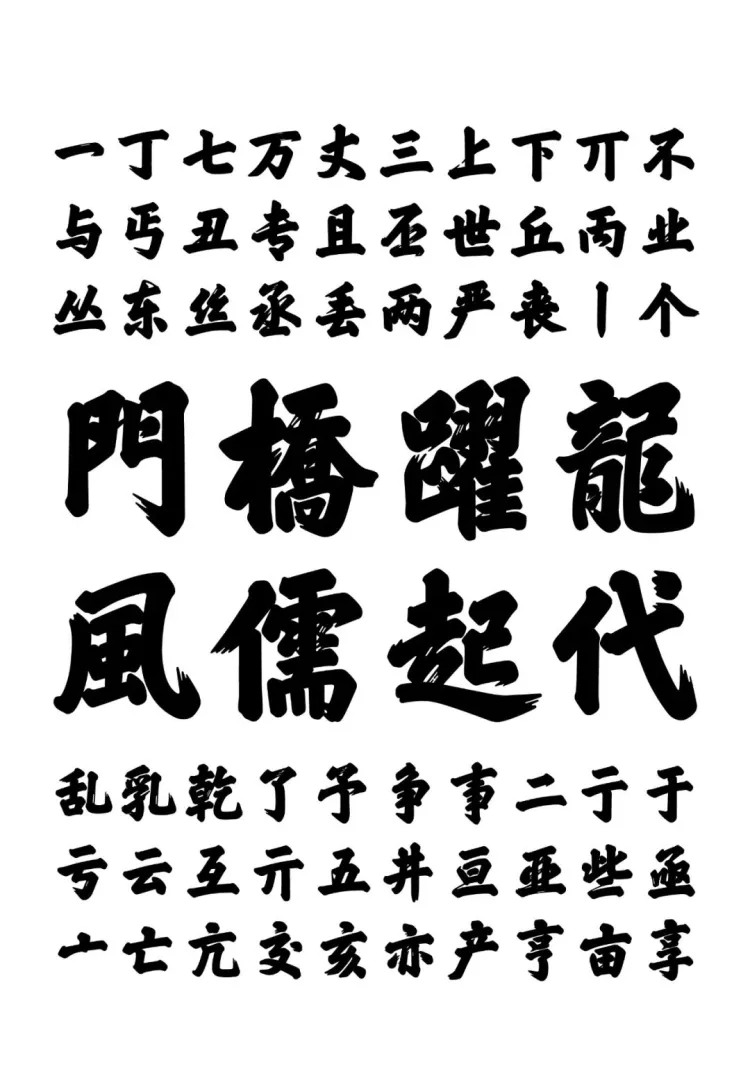 一丁七万丈三上下丌不
与丐丑专且丕世丘丙业
丛东丝丞丢两严丧丨个
門橋躍龍
風儒起代
乱乳乾了予争事二亍于
亏云互亓五井亘亚些亟
亠亡亢交亥亦产亨亩享